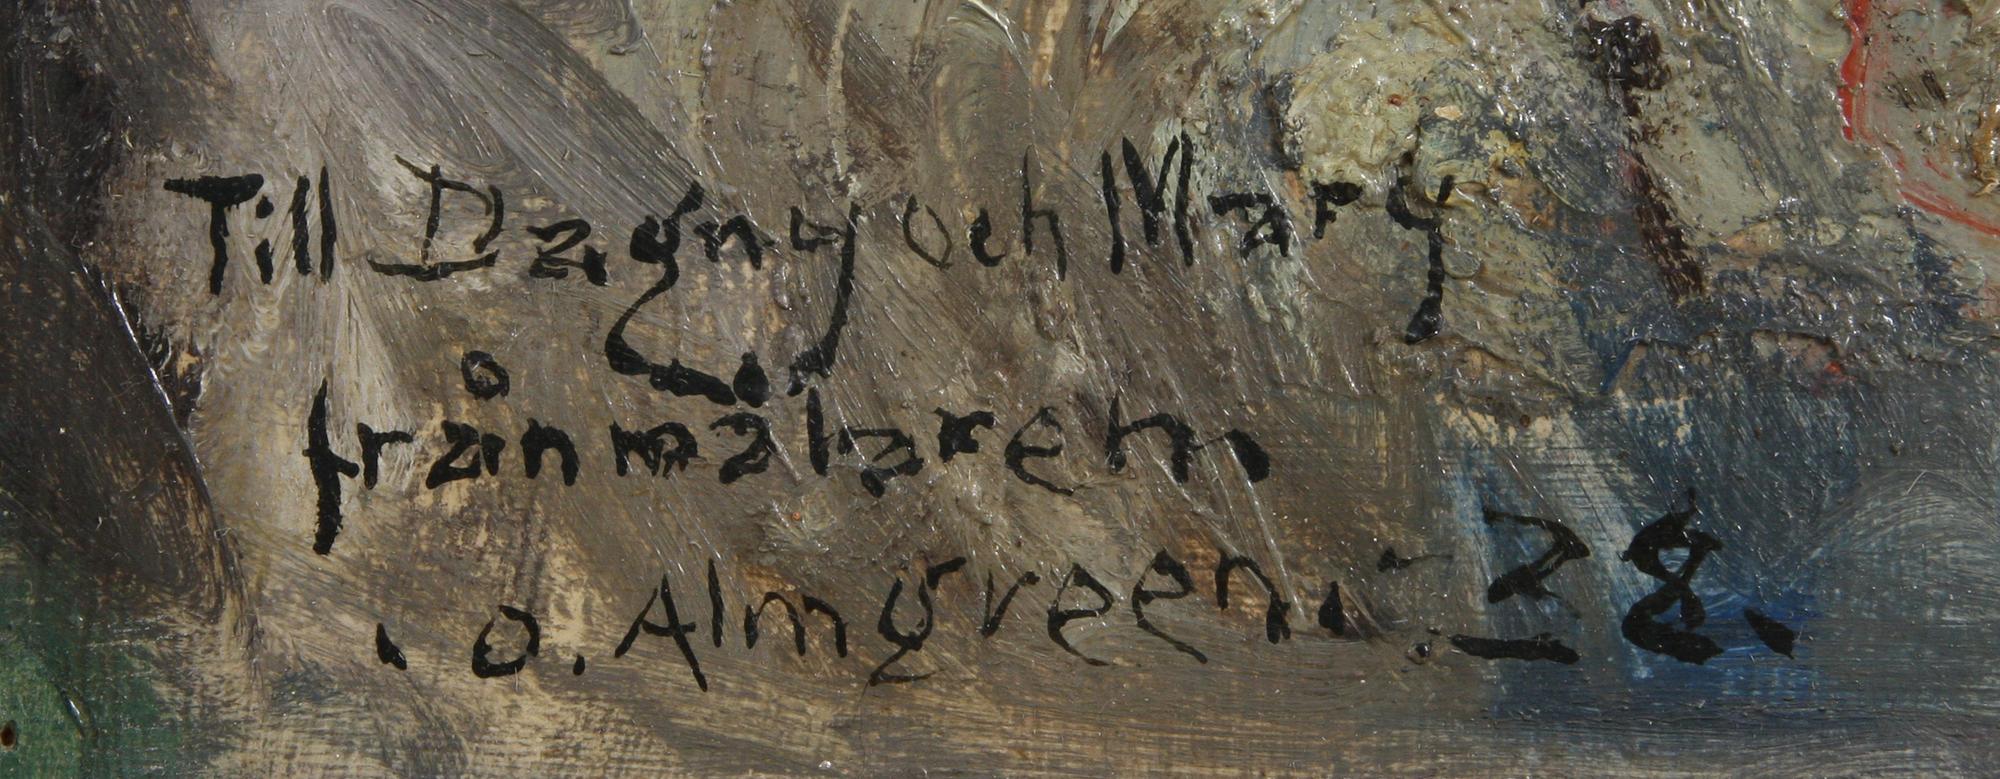 Till Dagny och Mary
från målaren.
. O. Almgreen. -28.